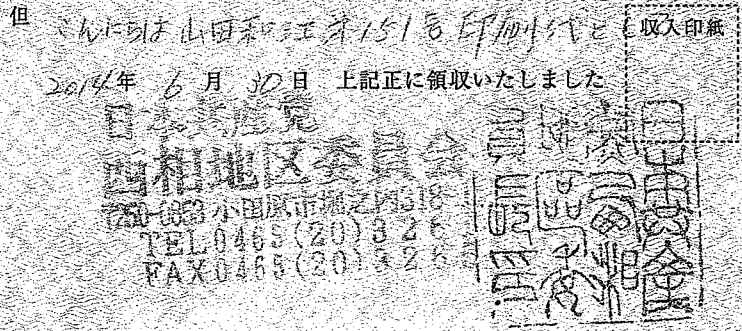 但 こんにちは山田和江第151号印刷代として
収入印紙
2014年 6月 30日 上記正に領収いたしました
日本共産党
西相地区委員会
〒250-0053 小田原市堀之内318-1
TEL0465(20)326
FAX0465(20)326